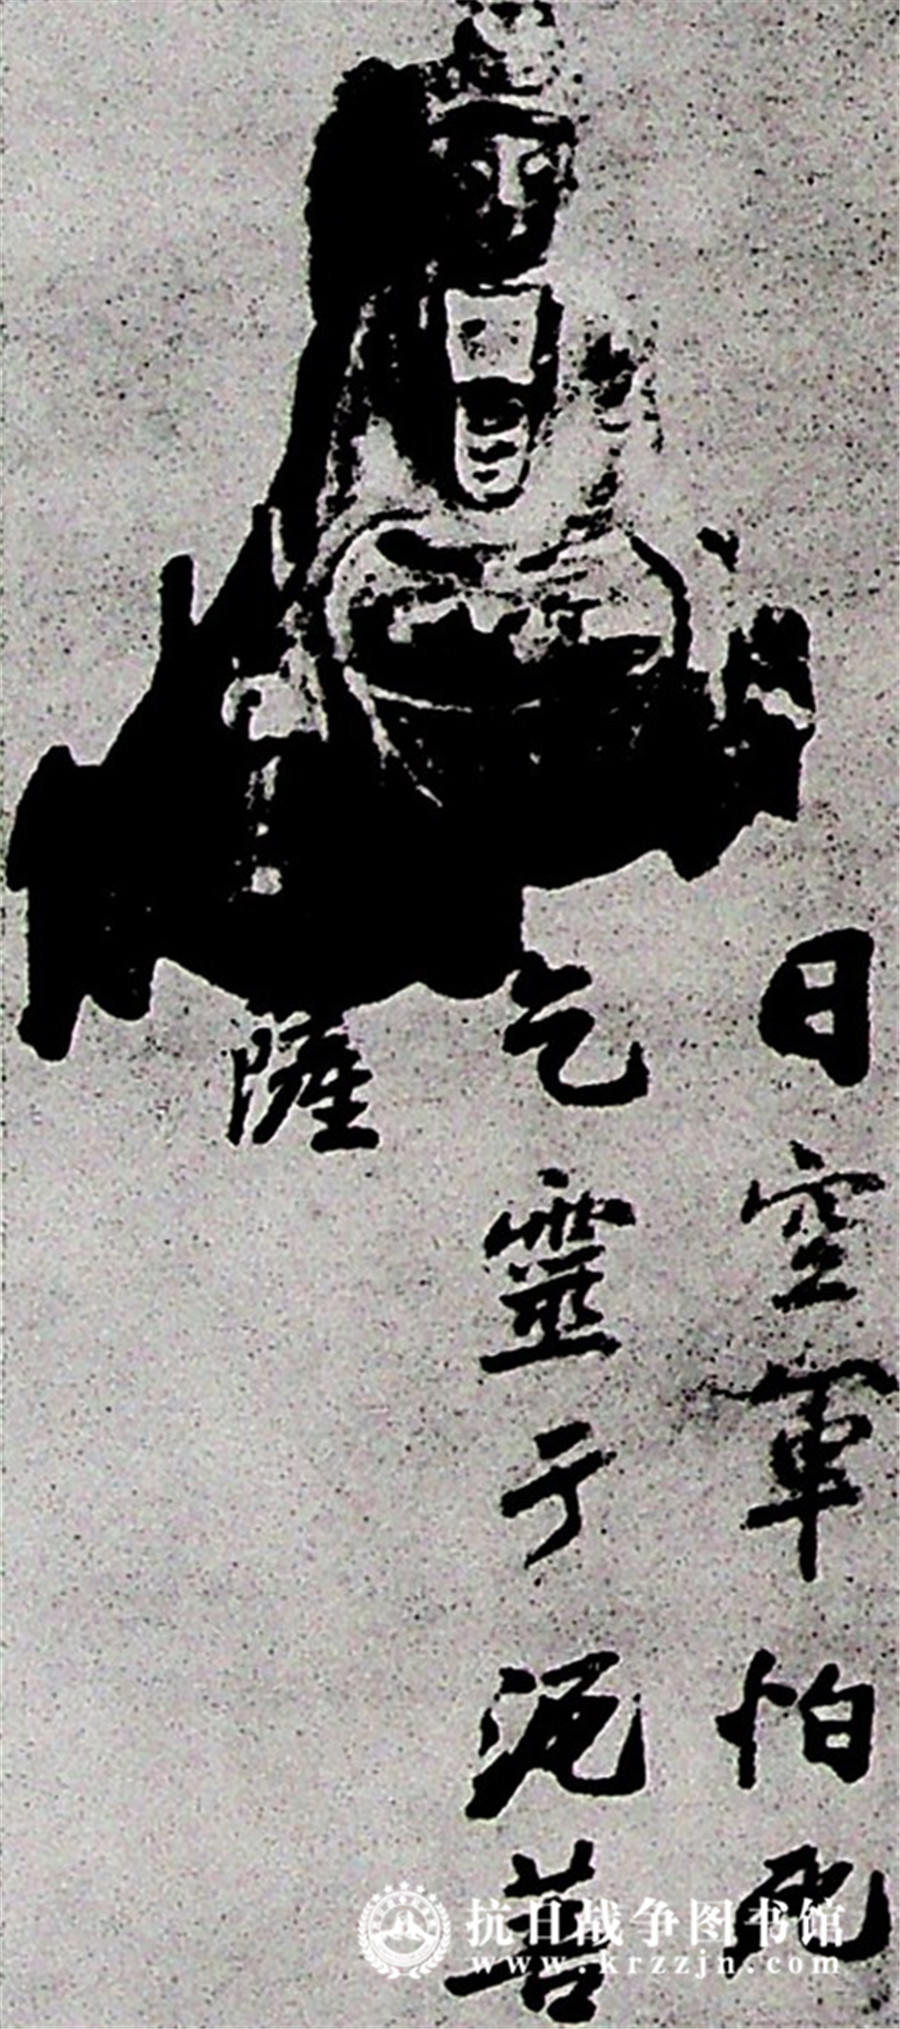 日空軍怕死
乞靈于泥菩
薩
抗日战争图书馆
www.krzzjn.com